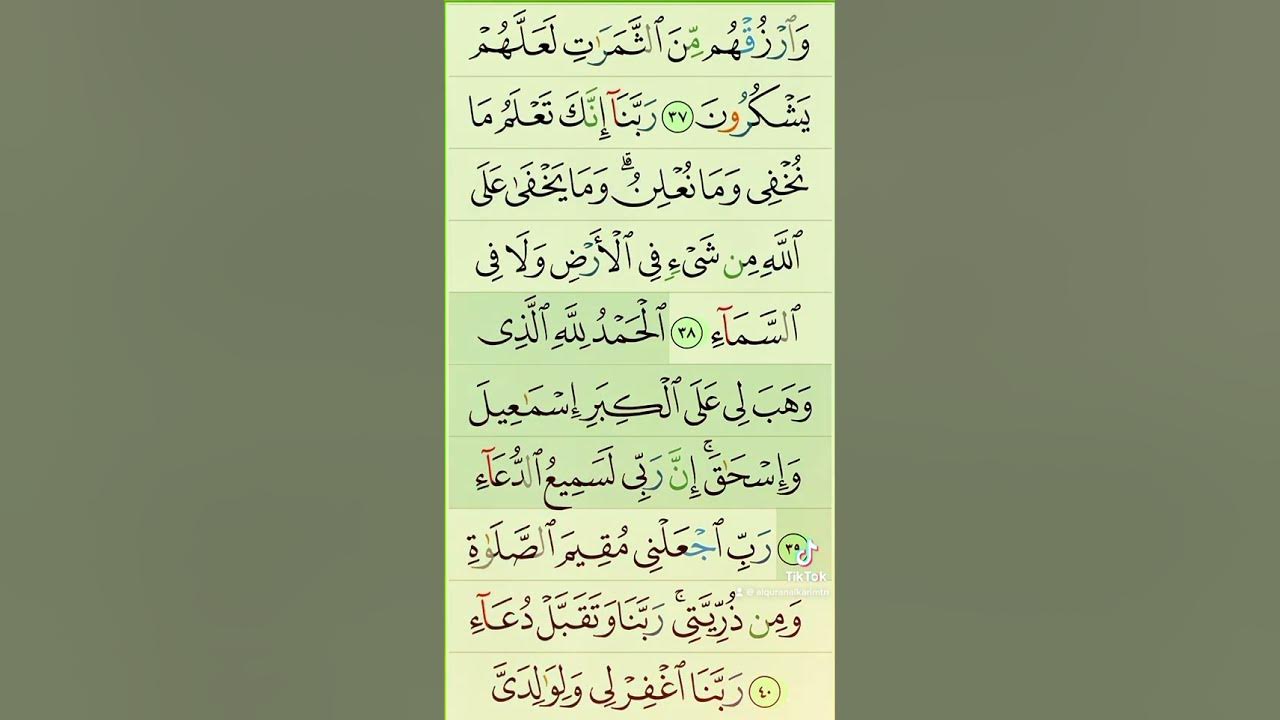 وَٱرۡزُقۡهُم مِّنَ ٱلثَّمَرَٰتِ لَعَلَّهُمۡ
يَشۡكُرُونَ ٣٧ رَبَّنَآ إِنَّكَ تَعۡلَمُ مَا
نُخۡفِي وَمَا نُعۡلِنُۗ وَمَا يَخۡفَىٰ عَلَى
ٱللَّهِ مِن شَيۡءٖ فِي ٱلۡأَرۡضِ وَلَا فِي
ٱلسَّمَآءِ ٣٨ ٱلۡحَمۡدُ لِلَّهِ ٱلَّذِي
وَهَبَ لِي عَلَى ٱلۡكِبَرِ إِسۡمَٰعِيلَ
وَإِسۡحَٰقَۚ إِنَّ رَبِّي لَسَمِيعُ ٱلدُّعَآءِ
٣٩ رَبِّ ٱجۡعَلۡنِي مُقِيمَ ٱلصَّلَوٰةِ
TikTok
@alquranalkarimtn
وَمِن ذُرِّيَّتِيۚ رَبَّنَا وَتَقَبَّلۡ دُعَآءِ
٤٠ رَبَّنَا ٱغۡفِرۡ لِي وَلِوَٰلِدَيَّ